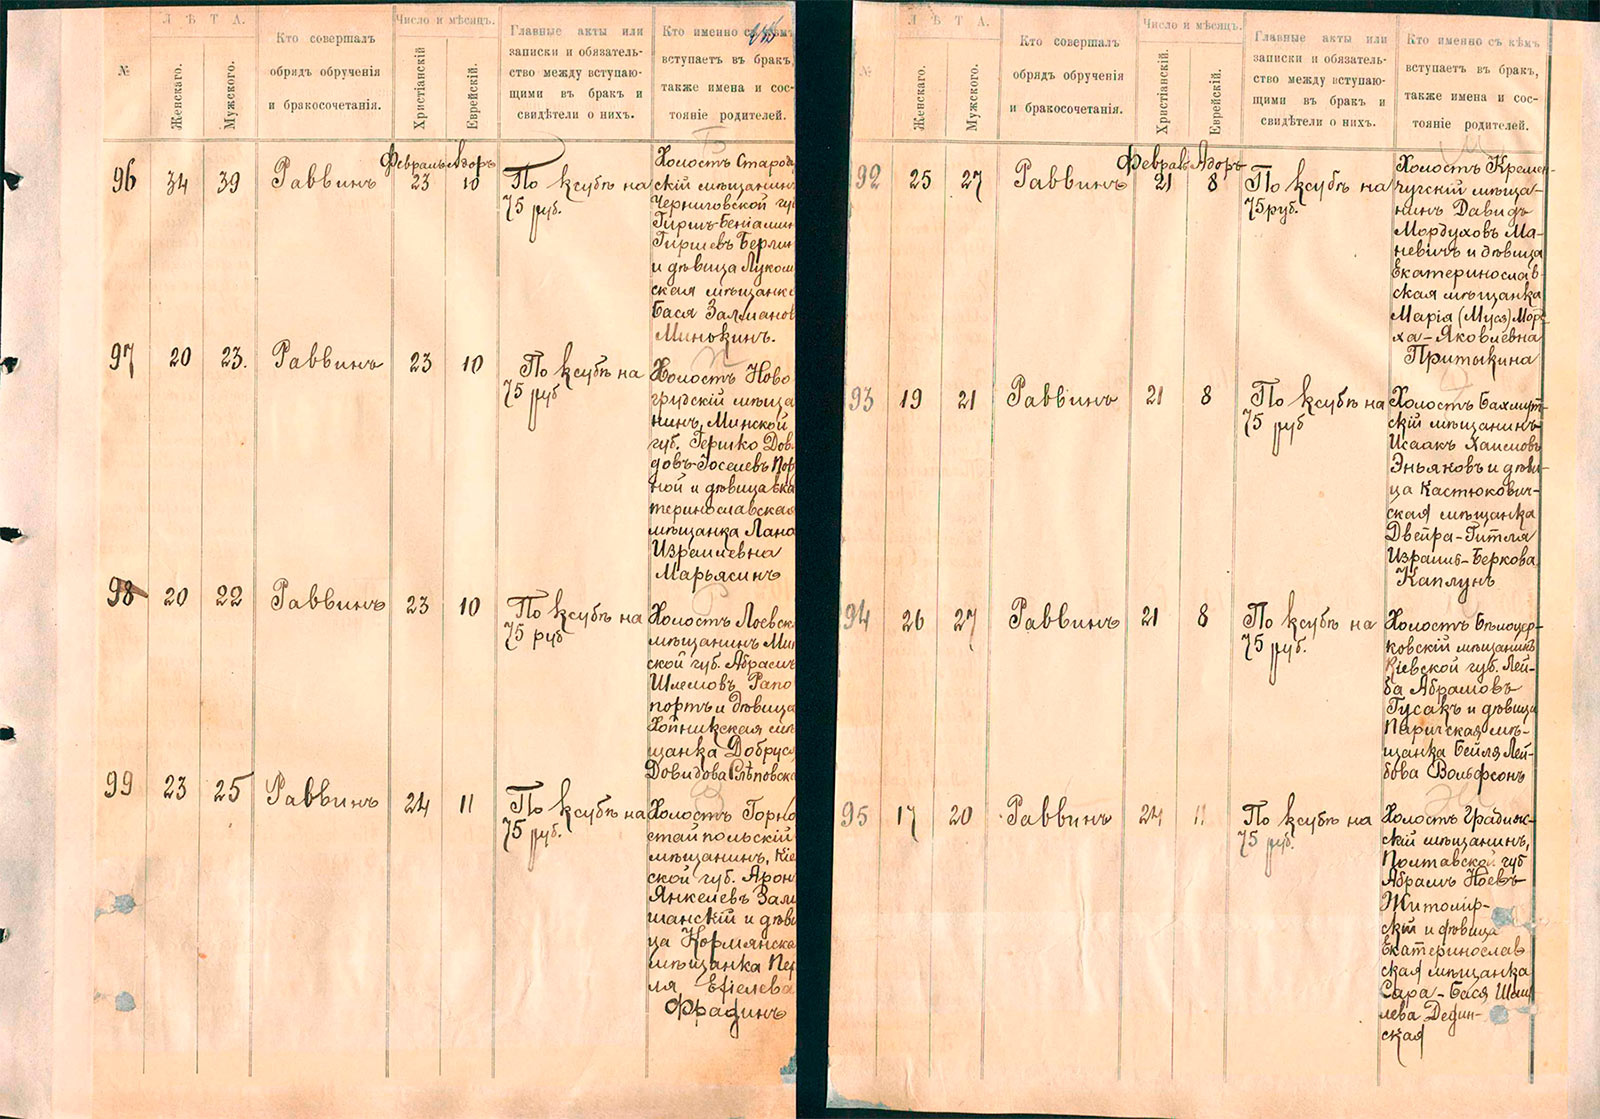 Л Ѣ Т А.
Число и мѣсяцъ.
№
Женскаго.
Мужского.
Кто совершалъ
обрядъ обрученія
и бракосочетанія.
Христіанскій
Еврейскій.
Главные акты или
записки и обязатель-
ство между вступаю-
щими въ бракъ и
свидѣтели о нихъ.
Кто именно съ кѣмъ
вступаетъ въ бракъ,
также имена и сос-
тояніе родителей.
Февраль Адоръ
96 34 39 Раввинъ 23 10 По ксубѣ на
75 руб.
Холостъ Старод
скій мѣщанинъ
Черниговской гу
Гиршъ-Беніамин
Гиршевъ Берлин
и дѣвица Луком
ская мѣщанка
Бася Залманов
Минькинъ.
97 20 23. Раввинъ 23 10 По ксубѣ на
75 руб
Холостъ Ново
грудскій мѣща
нинъ, Минской
губ. Гершко Дов
довъ-Іоселевъ Пор
ной и дѣвица Ека
теринославская
мѣщанка Лана
Израилевна
Марьясинъ
98 20 22 Раввинъ 23 10 По ксубѣ на
75 руб
Холостъ Лоевск
мѣщанинъ Мин
ской губ. Абрамъ
Шлемовъ Рапо
портъ и дѣвица
Хойникская мѣ
щанка Добруся
Довидова Слѣповска
99 23 25 Раввинъ 24 11 По ксубѣ на
75 руб.
Холостъ Горно
стайпольскій
мѣщанинъ, Кіе
ской губ. Арон
Янкелевъ Зали
шанскій и дѣви
ца Кормянска
мѣщанка Пер
ля Ехіелева
Фрадинъ
Л Ѣ Т А.
Число и мѣсяцъ.
№
Женскаго.
Мужского.
Кто совершалъ
обрядъ обрученія
и бракосочетанія.
Христіанскій
Еврейскій.
Главные акты или
записки и обязатель-
ство между вступаю-
щими въ бракъ и
свидѣтели о нихъ.
Кто именно съ кѣмъ
вступаетъ въ бракъ,
также имена и сос-
тояніе родителей.
Феврал Адоръ
92 25 27 Раввинъ 21 8 По ксубѣ на
75 руб.
Холостъ Кремен-
чугскій мѣща-
нинъ Давидъ
Мордуховъ Ма-
невичъ и дѣвица
Екатеринослав-
ская мѣщанка
Марія (Муся) Мор-
ха-Яковлевна
Притыкина
93 19 21 Раввинъ 21 8 По ксубѣ на
75 руб
Холостъ Бахмут-
скій мѣщанинъ
Исаакъ Хаимовъ
Эньяковъ и дѣви-
ца Кастюкович-
ская мѣщанка
Двейра-Гитля
Израиль-Беркова
Каплунъ
94 26 27 Раввинъ 21 8 По ксубѣ на
75 руб.
Холостъ Бѣлоцер-
ковскій мѣщанинъ
Кіевской губ. Лей-
ба Абрамовъ
Гусакъ и дѣвица
Паричская мѣ-
щанка Бейля Лей-
бова Вольфсонъ
95 17 20 Раввинъ 24 11 По ксубѣ на
75 руб.
Холостъ Градиж-
скій мѣщанинъ,
Полтавской губ
Абрамъ Ноевъ
Житомір-
скій и дѣвица
Екатеринослав
ская мѣщанка
Сара-Бася Шац
лева Дедин-
ская